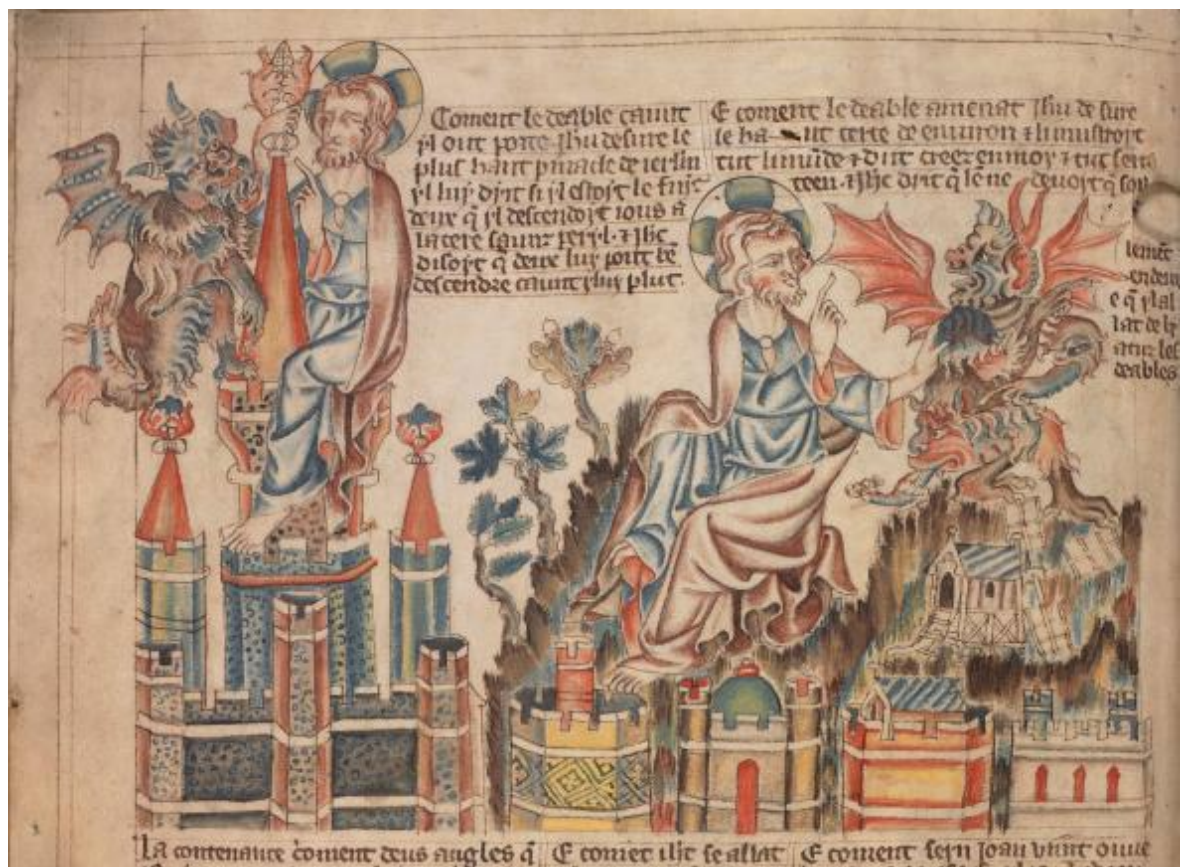 Coment le deable caunt
yl out porte Jhu desure le
plus haut pinacle de ierlm
yl luy dyt si yl estoyt le fuiz
deux q yl descendoyt ious a
la tere saunz peryl. & Jhc
disoyt q deux luy pout be
descendre caunt yluy plut.
E coment le deable amenat Jhu de sure
le ha ut tertre de environ & li mustroyt
tut li munde & dit creez en moy & tut serra
teen. & Jhc dit q le ne devoyt q soul
lemet
en deux
e q yl al
lat de ly
atur les
deables
La contenance coment deus angles q
E comet ihc se allat
E coment seyn Joan vynt